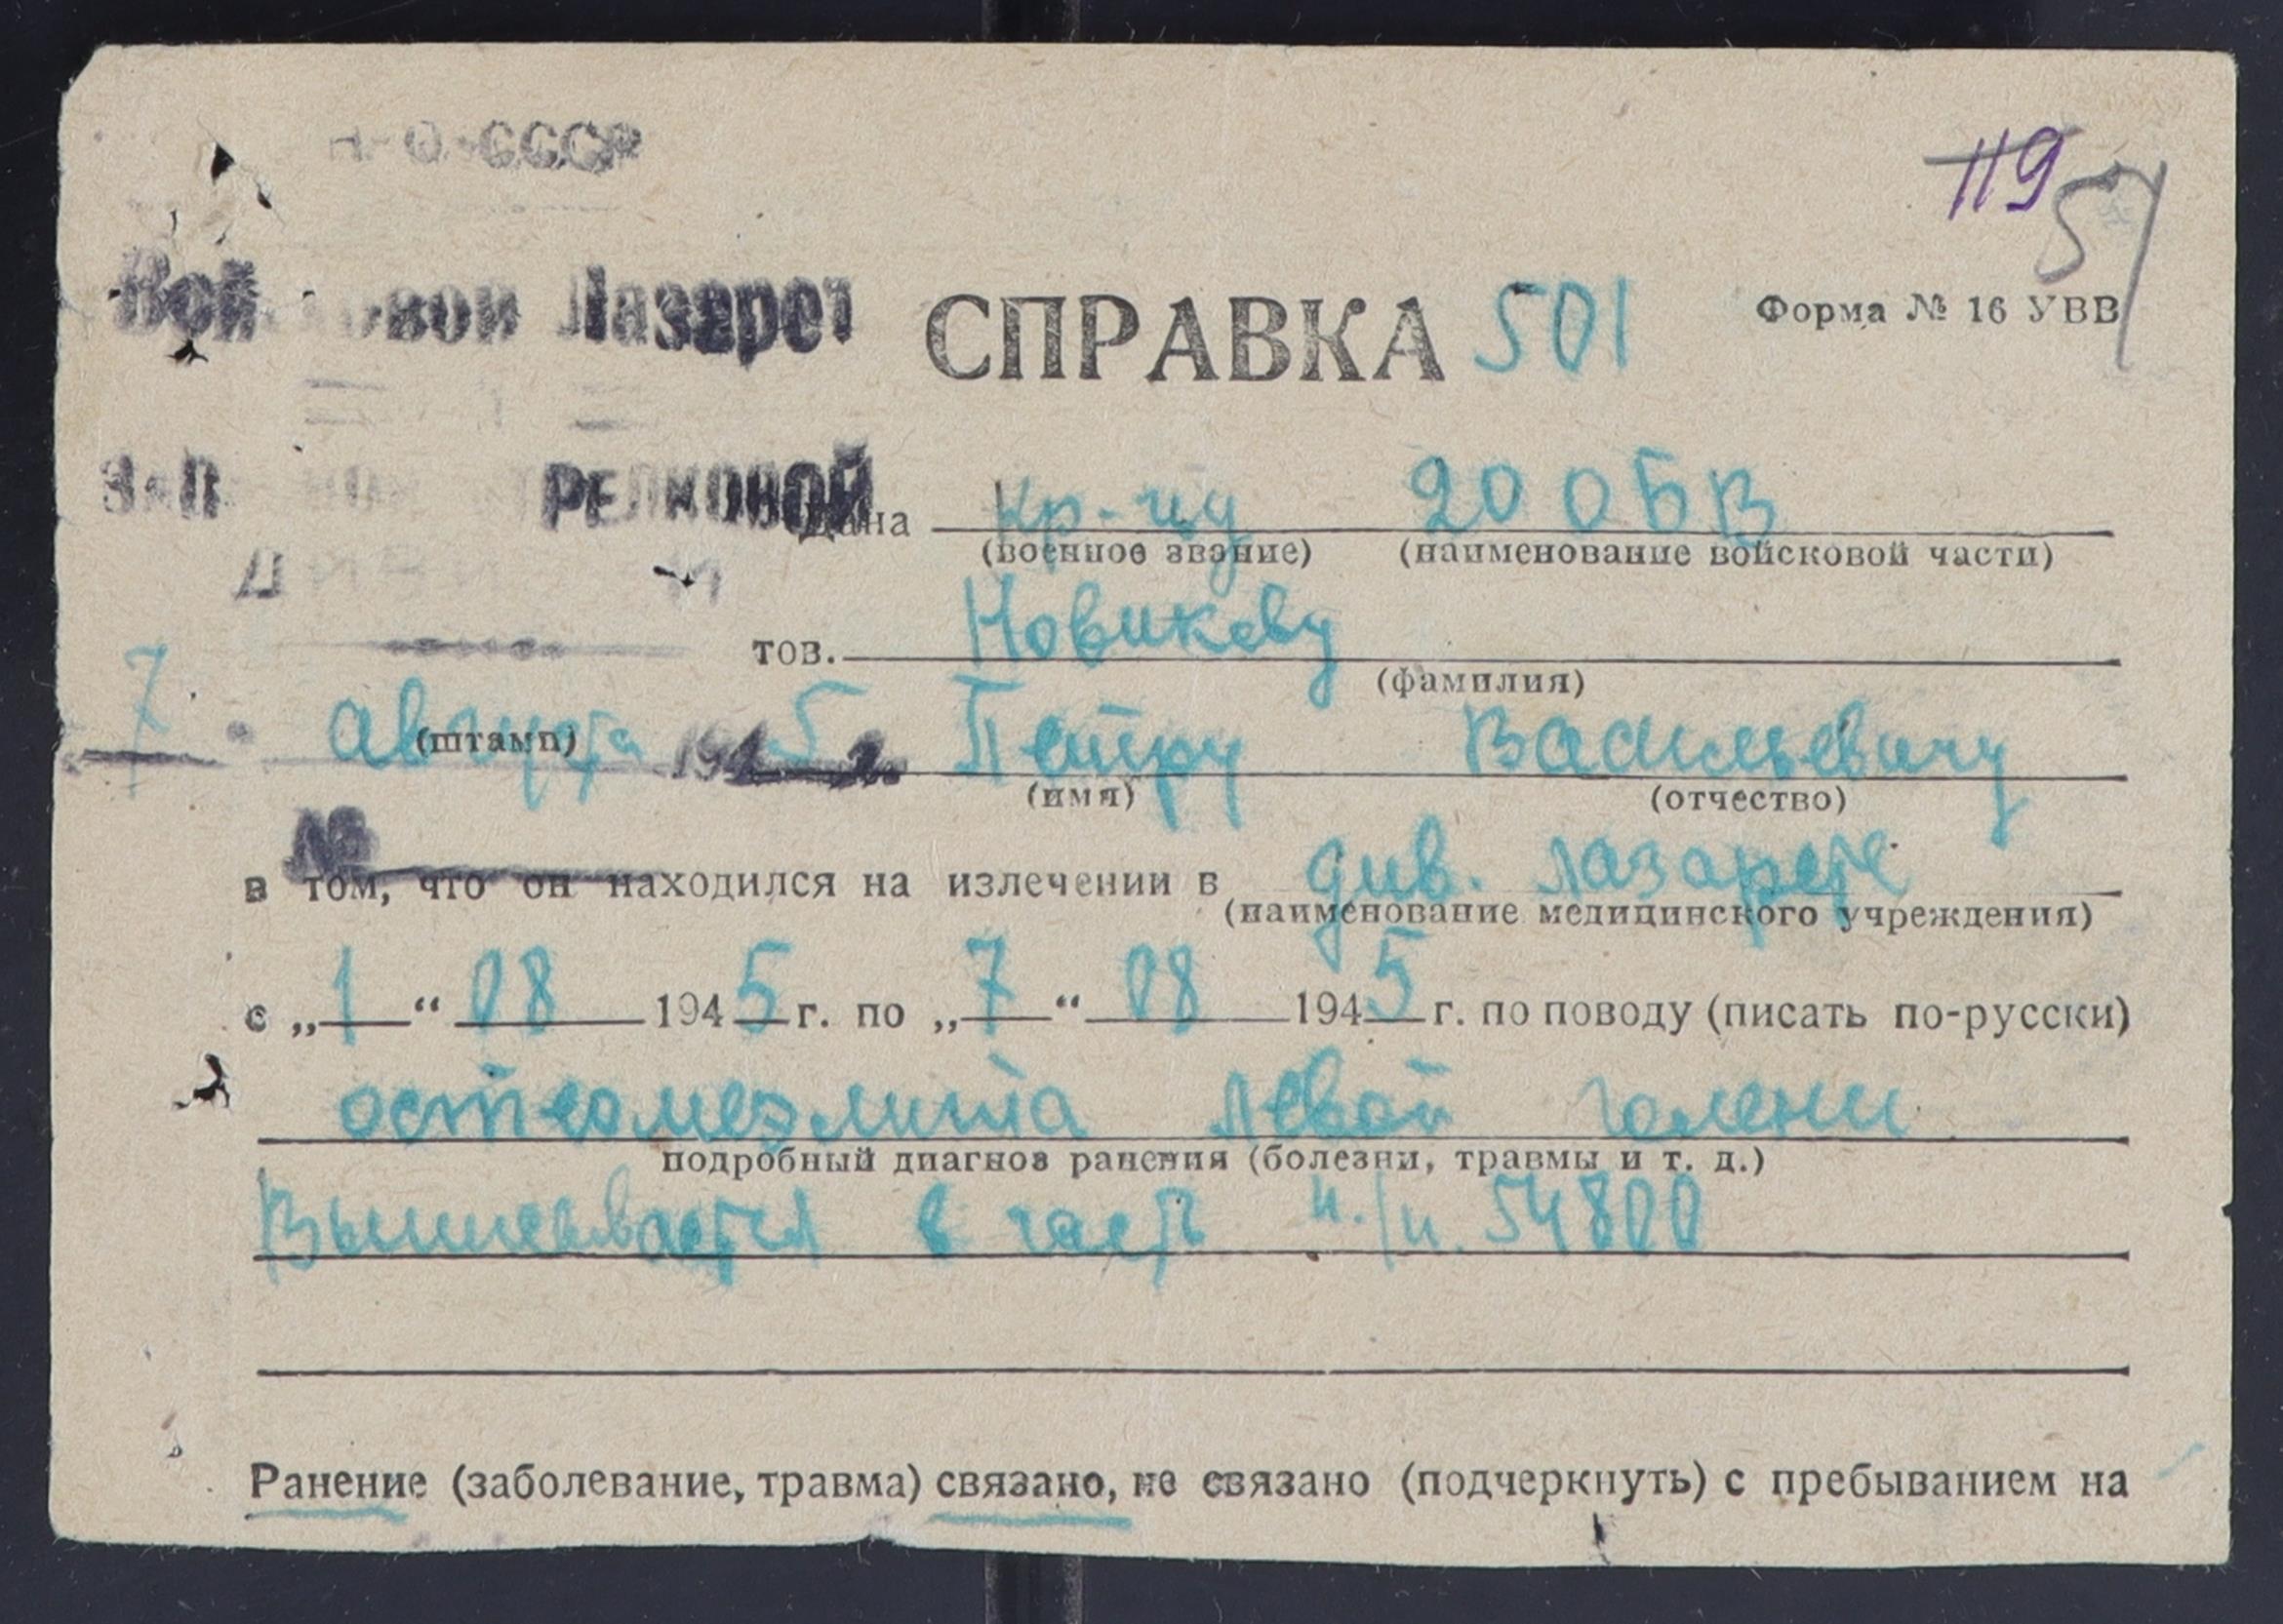 О СССР
119
51
овой Лазарет
СПРАВКА 501
Форма № 16 УВВ
РЕЛКОВОЙ
дана кр-цу 20 ОБВ
(военное звание) (наименование войсковой части)
тов. Новикову
(фамилия)
7 августа 1945 г. Петру Васильевичу
(штамп) (имя) (отчество)
№
в том, что он находился на излечении в див. лазарете
(наименование медицинского учреждения)
с „1“ 08 1945 г. по „7“ 08 1945 г. по поводу (писать по-русски)
остеомеэлита левой голени
подробный диагноз ранения (болезни, травмы и т. д.)
Выписывается в часть п./п. 54800
Ранение (заболевание, травма) связано, не связано (подчеркнуть) с пребыванием на